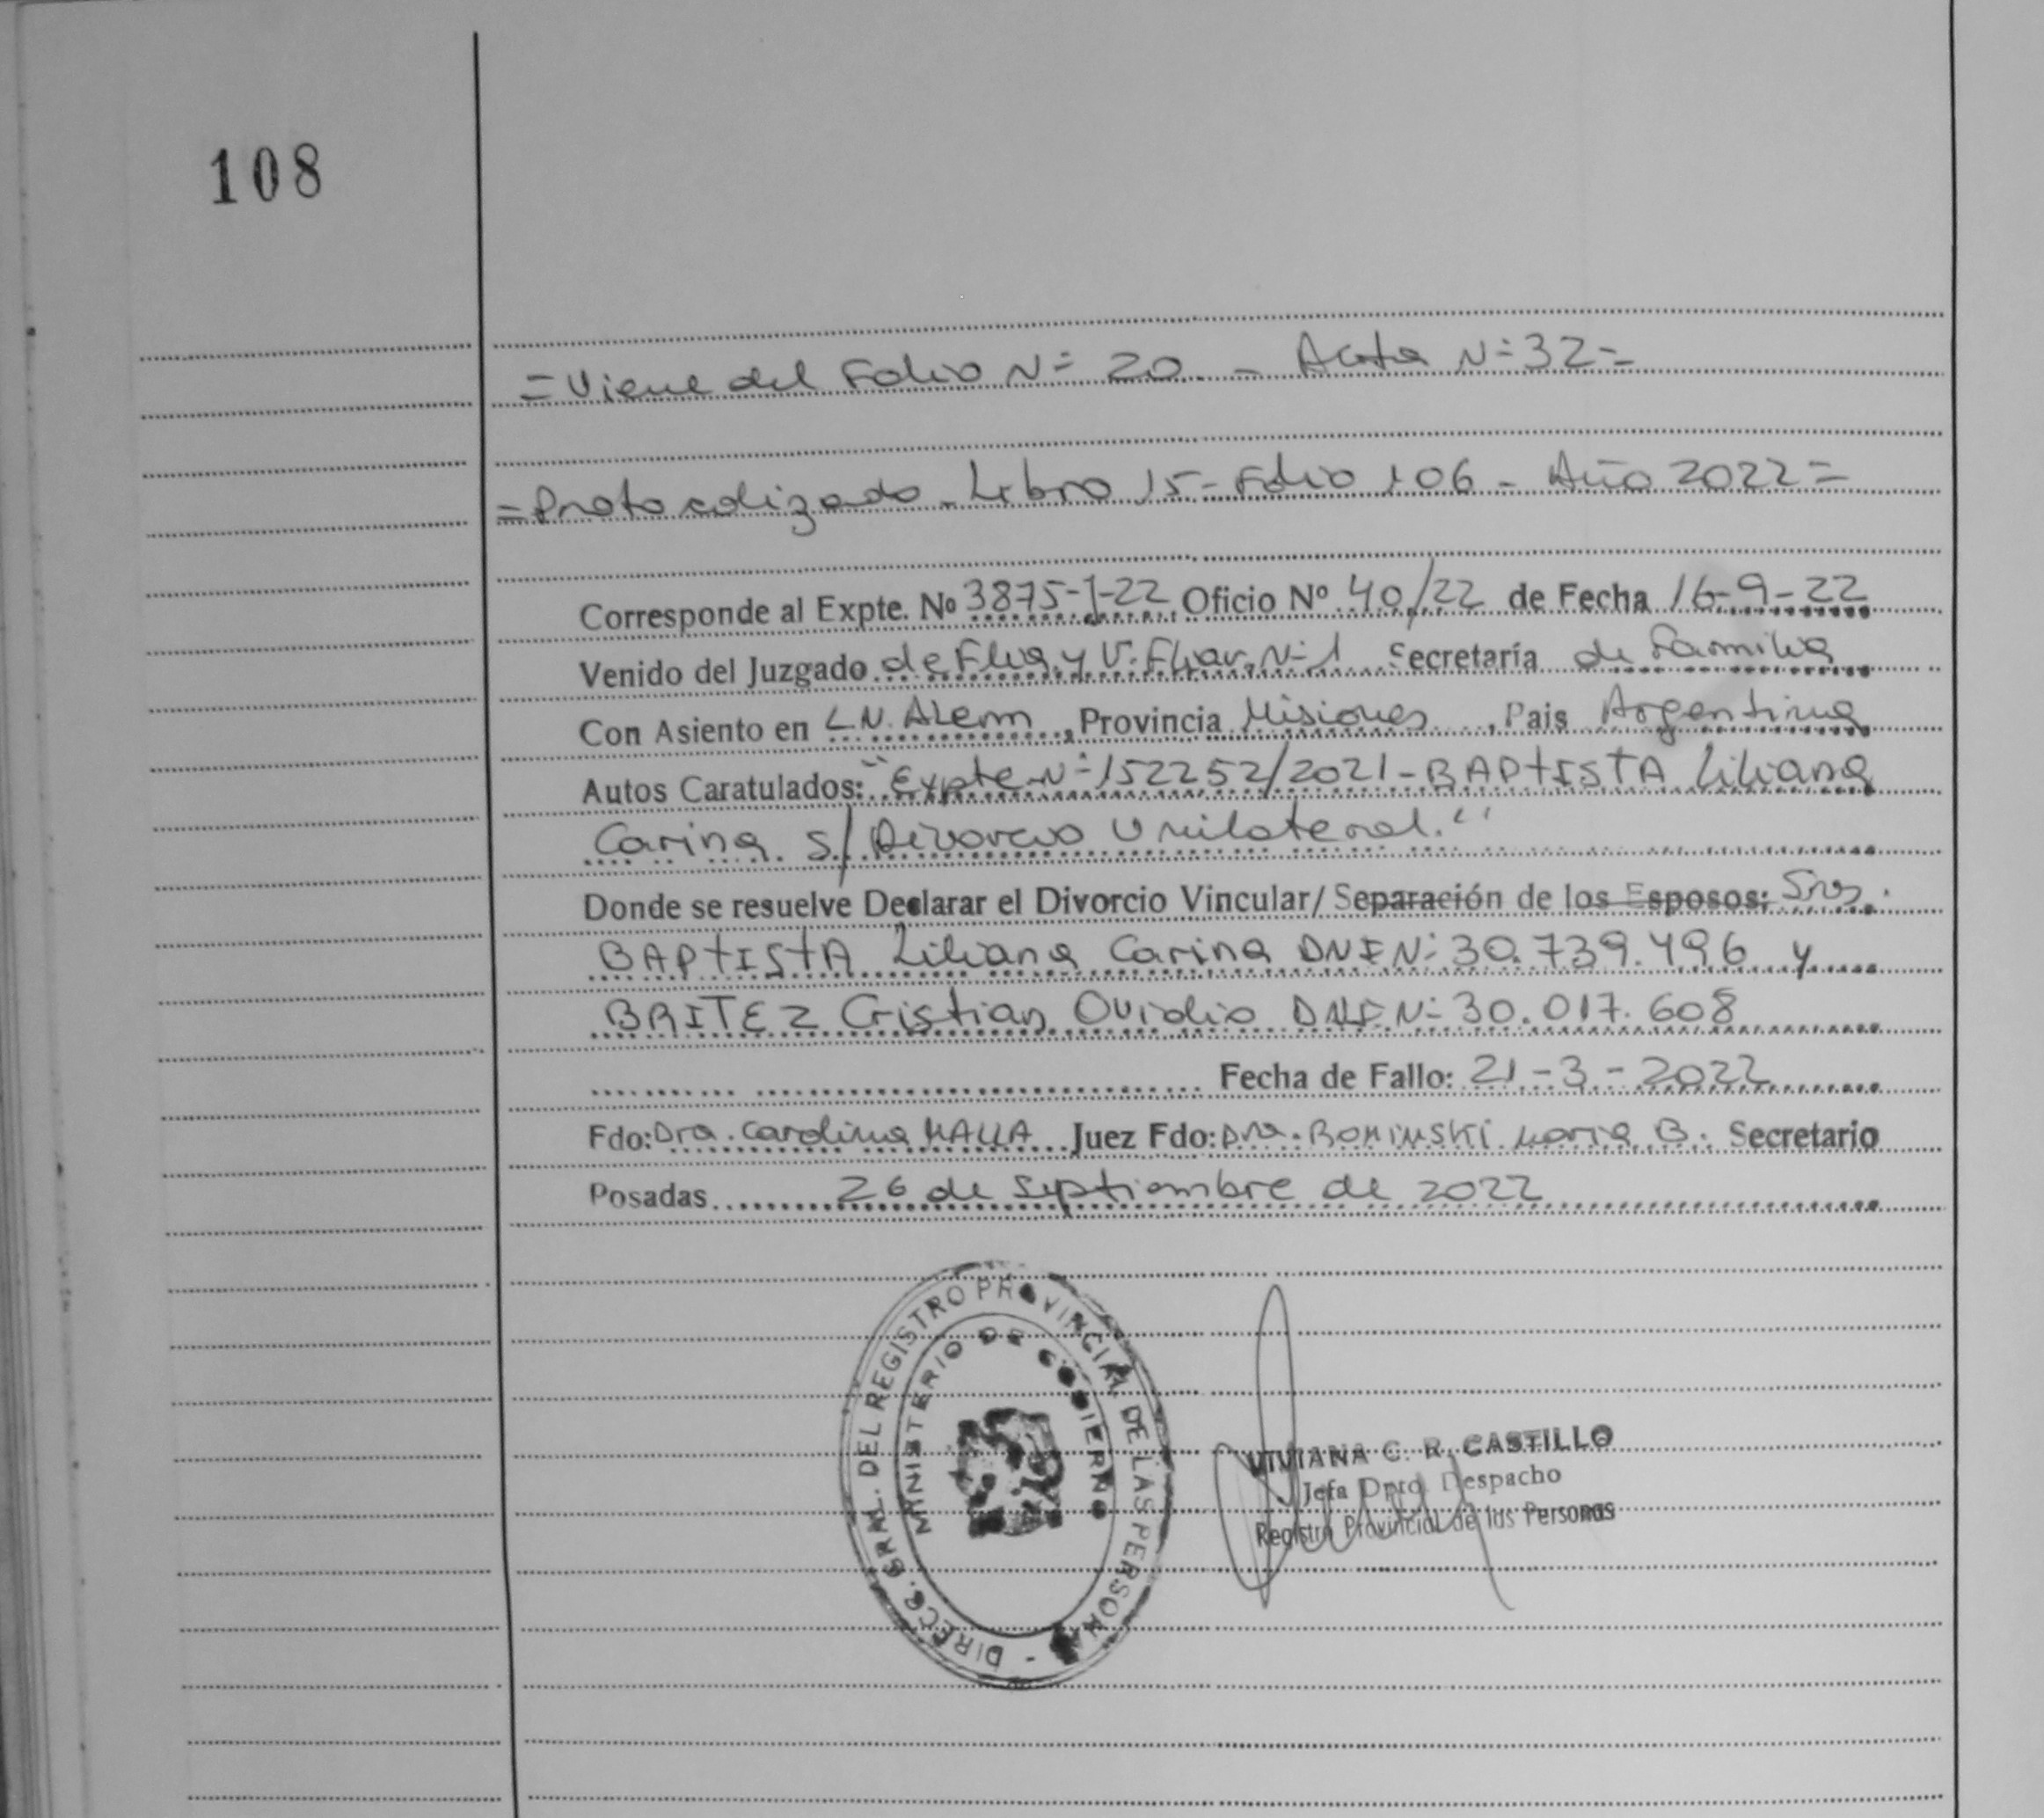 108
=Viene del Folio Nº 20 - Acta Nº 32=
=Protocolizado - Libro 15 - Folio 106 - Año 2022=
Corresponde al Expte. Nº 3875-J-22 Oficio Nº 40/22 de Fecha 16-9-22
Venido del Juzgado de Flia. y V. Fliar. Nº 1 Secretaría de Familia
Con Asiento en L.N. Alem, Provincia Misiones, Pais Argentina
Autos Caratulados: "Expte Nº 152252/2021 - BAPTISTA Liliana
Carina s/ Divorcio Unilateral."
Donde se resuelve Declarar el Divorcio Vincular/ Separación de los Esposos; Sres.
BAPTISTA Liliana Carina DNI Nº 30.739.496 y
BRITEZ Cristian Ovidio DNI Nº 30.017.608
Fecha de Fallo: 21-3-2022
Fdo: Dra. Carolina Juez Fdo: Dra. María B. Secretario
Posadas 26 de septiembre de 2022
DIRECC. GRAL. DEL REGISTRO PROVINCIAL DE LAS PERSONAS -
MINISTERIO DE GOBIERNO
VIVIANA C. R. CASTILLO
Jefa Dpto. Despacho
Registro Provincial de las Personas